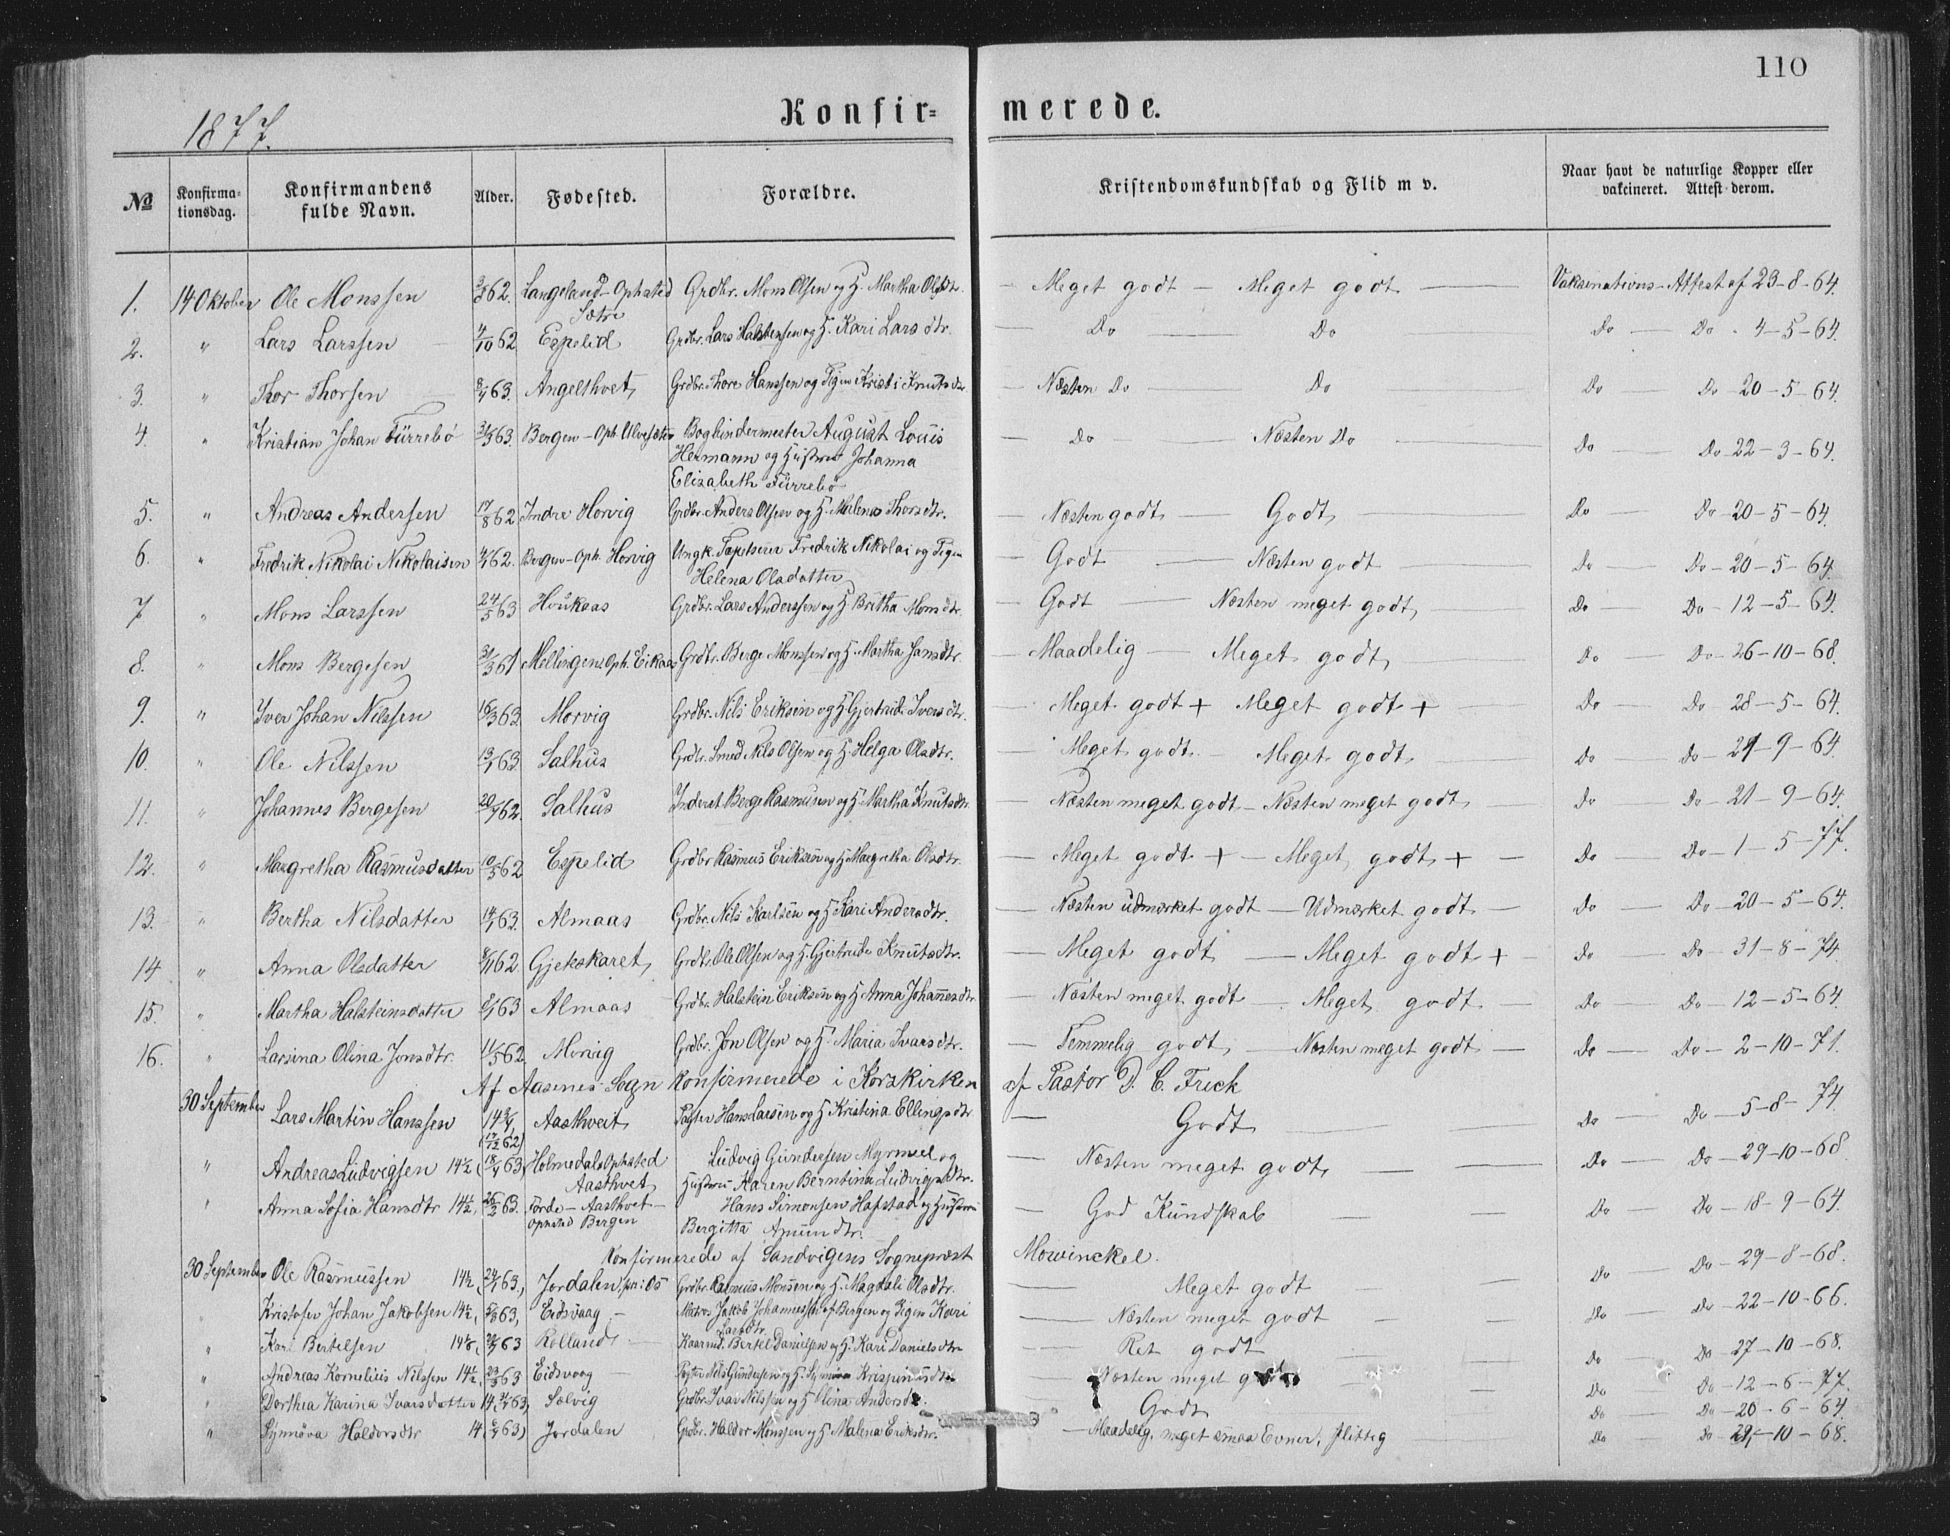 110
1877.
Konfir= merede.
№ Konfirma-tionsdag. Konfirmandens fulde Navn. Alder. Fødested. Forældre. Kristendomskundskab og Flid m v. Naar havt de naturlige Kopper eller vakcineret. Attest derom.
1. 14 Oktober Ole Monssen 62. Langeland Ophsted Sætre Grdbr. Mons Olsen og H. Martha Olsdtr. — Meget godt — Meget godt — Vaksinations-Attest af 23-8-64.
2. " Lars Larssen 4/10 62 Espelid Grdbr. Lars Halstensen og H. Kari Larsdtr. — Do Do Do — Do - 4-5-64.
3. " Thor Thorsen 63. Angelthvet Grdbr. Thore Hanssen og Pigen Kristi Knutsdtr — Næsten Do — Do Do Do 20-5-64.
4. " Kristian Johan Fürrebö 63. Bergen - Oph. Ulvesæter Bogbindermester August Louis Hermann og Hustru Johanna Elizabeth Fürrebö — Do Næsten Do Do — Do - 22-3-64.
5. " Andreas Andersen 17/8 62 Indre Horvig Grdbr. Anders Olsen og H. Malena Thorsdtr. — Næsten godt — Godt Do — Do - 20-5-64.
6. " Fredrik Nikolai Nikolaisen 62. Bergen - Oph. Horvig Ungk. Tapetserer Fredrik Nikolai og Pigen Helena Olsdatter — Godt — Næsten godt Do — Do - 20-5-64.
7 " Mons Larssen 24/5 63 Houkaas Grdbr. Lars Anderssen og H. Britha Monsdtr. — Godt — Næsten meget godt Do — Do - 12-5-64.
8. " Mons Bergesen 31/3 61 Mellingen Oph. Eikaas Grdbr. Berge Monssen og H. Martha Jansdtr. — Maadelig — Meget godt Do — Do - 26-10-68.
9. " Iver Johan Nilssen 16/3 63. Morvig Grdbr. Nils Eriksen og H Gjertrude Iversdtr. — Meget godt + Meget godt + — Do — Do - 28-5-64.
10. " Ole Nilssen 63. Salhus Grdbr. Smed Nils Olsen og H. Helga Olsdtr. — Meget godt — Meget godt Do — Do - 9-64.
11. " Johannes Bergesen 62. Salhus Inderst Berge Rasmusen og H Martha Knutsdtr. — Næsten meget godt — Næsten meget godt Do — Do - 21-9-64.
12. " Margretha Rasmusdatter 10/5 62 Espelid Grdbr Rasmus Eriksen og H Margretha Olsdtr. — Meget godt + — Meget godt + — Do — Do - 1-5-77.
13. " Bertha Nilsdatter 63. Almaas Grdbr. Nils Karlsen og H Kari Andersdtr. — Næsten udmærket godt — Udmærket godt — Do — Do - 20-5-64.
14 " Anna Olsdatter 62. Gjekskaret Grdbr. Ole Olsen og H. Gjertrude Knutsdtr. — Meget godt — Meget godt + — Do — Do - 31-8-74.
15. " Martha Halsteinsdatter 63 Almaas Grdbr. Halstein Eriksen og H Anna Johannesdtr — Næsten meget godt — Meget godt — Do — Do - 12-5-64.
16. " Larsina Olina Jonsdtr. 11/5 62. Morvig Grdbr. Jon Olsen og H. Maria Ivarsdtr. — Temmelig godt — Næsten meget godt — Do — Do - 2-10-71.
Af Aasenes Sogn konfirmerede i Korskirken af Pastor D. C. Frick
30 September Lars Martin Hanssen (17/12 62) Aasthveit Hans Larsen og H Kristina Ellingsdtr — Godt Do — Do - 5-8-74.
" Andreas Ludvigsen 14½ (63) Holmedal Ophsted Aasthvet Ludvig Gundersen Myrmel og Hustru Karen Berntina Ludvigsdtr. Næsten meget godt — Do — Do - 29-10-68
" Anna Sofia Hansdtr 14½ 63. Förde - Aasthvet - Ophsted Bergen Hans Simonsen Hafstad og Hustru Bergitta Amundtr. — God Kundskab — Do — Do - 18-9-64.
Konfirmerede af Sandvigens Sogneprest Mowinckel.
30 September Ole Rasmussen 14½ 63, Jordalen, Grdbr. Rasmus Monsen og H. Magdali Olsdtr. — Meget godt — Do — Do - 29-8-68.
" Kristofer Johan Jakobsen 14½, 63, Eidsvaag — Matros Jakob Johannessen af Bergen og Pigen Kari Larsdtr. — Næsten meget godt — Do — Do - 22-10-66.
" Karl Bertelsen 63 Rolland — Bertel Danielsen og H. Kari Danielsdtr — Ret godt — Do Do - 27-10-68.
" Andreas Kornelius Nilssen 14½, 63 Eidsvaag — Nils Gundersen og H. Krispinusdtr — Næsten meget godt — Do — Do - 12-6-77.
" Dorthea Karina Ivarsdatter 14, 63, Solvig Grdbr. Ivar Nilssen og H Olina Andersdtr. Godt Do — Do - 20-6-64.
" Synnöva Haldorsdtr 14 63) Jordalen Grdbr. Haldor Monssen og H Malena Eriksdtr. — Maadelig, meget smaa Evner, flittig — Do — Do - 10-68.